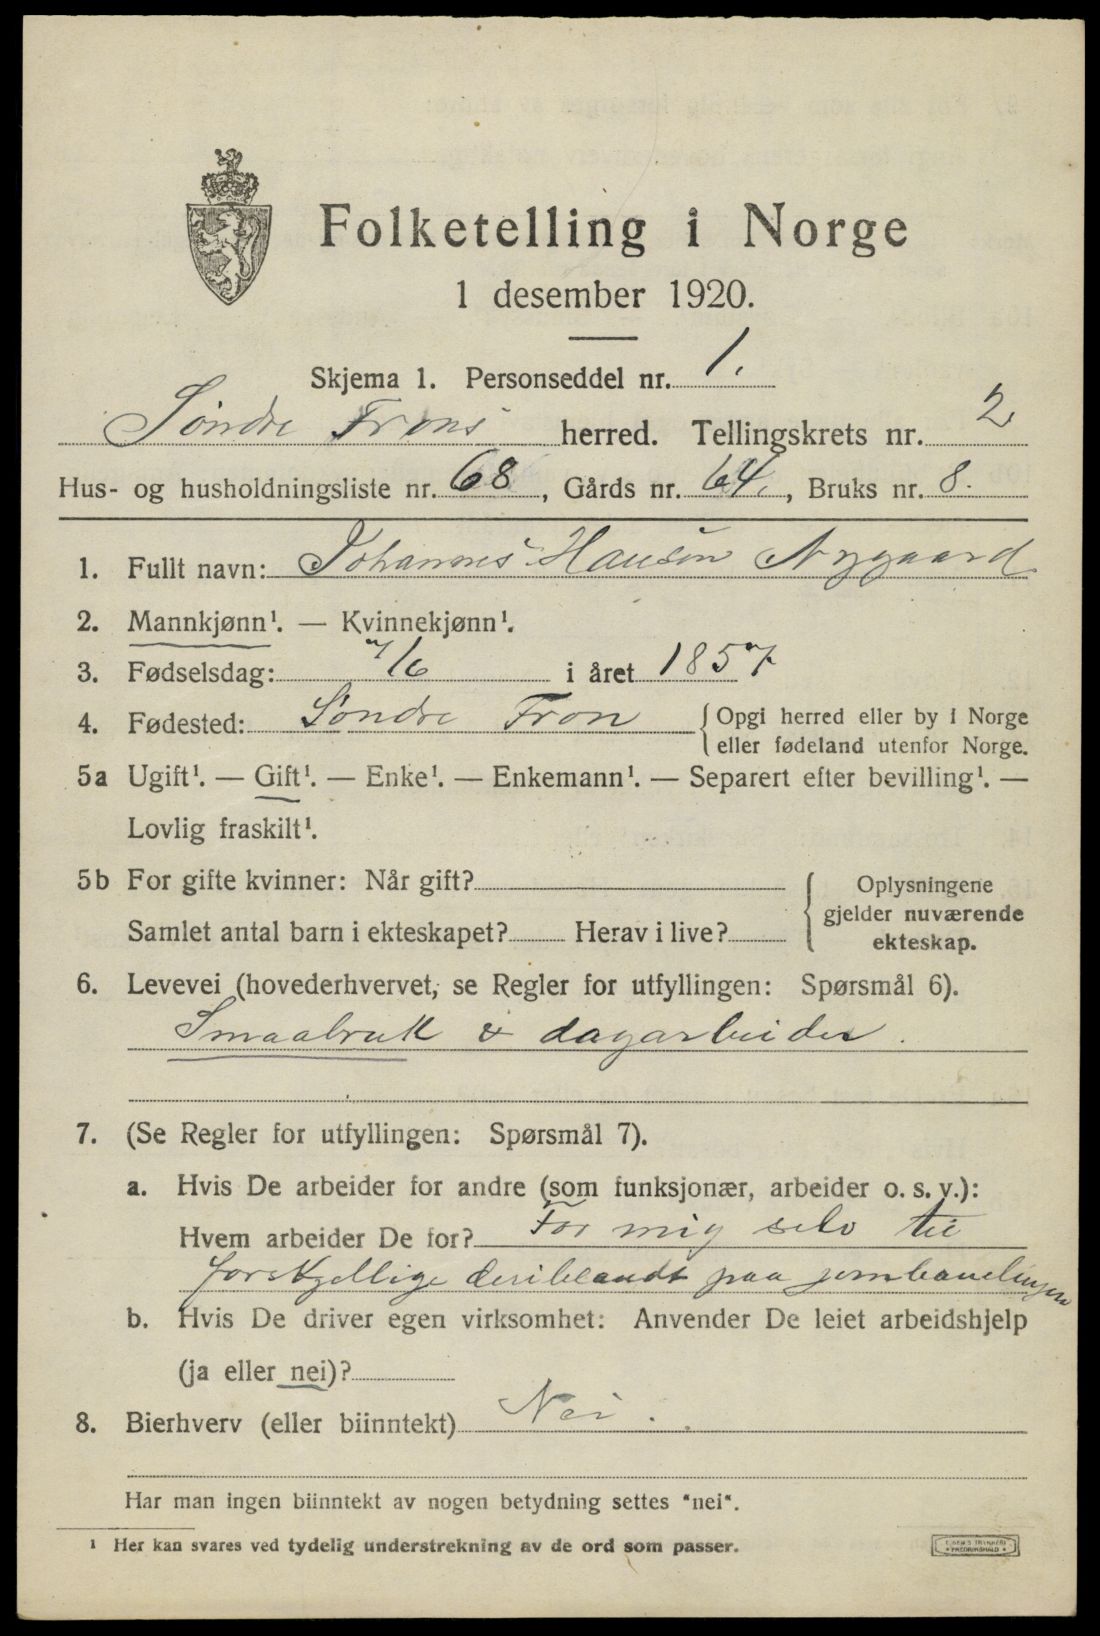 Folketelling i Norge
1 desember 1920.
Skjema 1. Personseddel nr. 1.
Søndre Frons herred. Tellingskrets nr. 2
Hus- og husholdningsliste nr. 68, Gårds nr. 64., Bruks nr. 8.
1. Fullt navn: Johannes Hansen Nygaard
2. Mannkjønn¹. — Kvinnekjønn¹.
3. Fødselsdag: 7/6 i året 1857
4. Fødested: Søndre Fron {Opgi herred eller by i Norge
eller fødeland utenfor Norge.
5a Ugift¹. — Gift¹. — Enke¹. — Enkemann¹. — Separert efter bevilling¹. —
Lovlig fraskilt¹.
5b For gifte kvinner: Når gift?
Samlet antal barn i ekteskapet? Herav i live?
Oplysningene
gjelder nuværende
ekteskap.
6. Levevei (hovederhvervet, se Regler for utfyllingen: Spørsmål 6).
Smaabruk & dagarbeider.
7. (Se Regler for utfyllingen: Spørsmål 7).
a. Hvis De arbeider for andre (som funksjonær, arbeider o. s. v.):
Hvem arbeider De for? For mig selv til
forskjellige deriblandt paa jernbanelinjen
b. Hvis De driver egen virksomhet: Anvender De leiet arbeidshjelp
(ja eller nei)?
8. Bierhverv (eller biinntekt) Nei.
Har man ingen biinntekt av nogen betydning settes "nei".
¹ Her kan svares ved tydelig understrekning av de ord som passer.